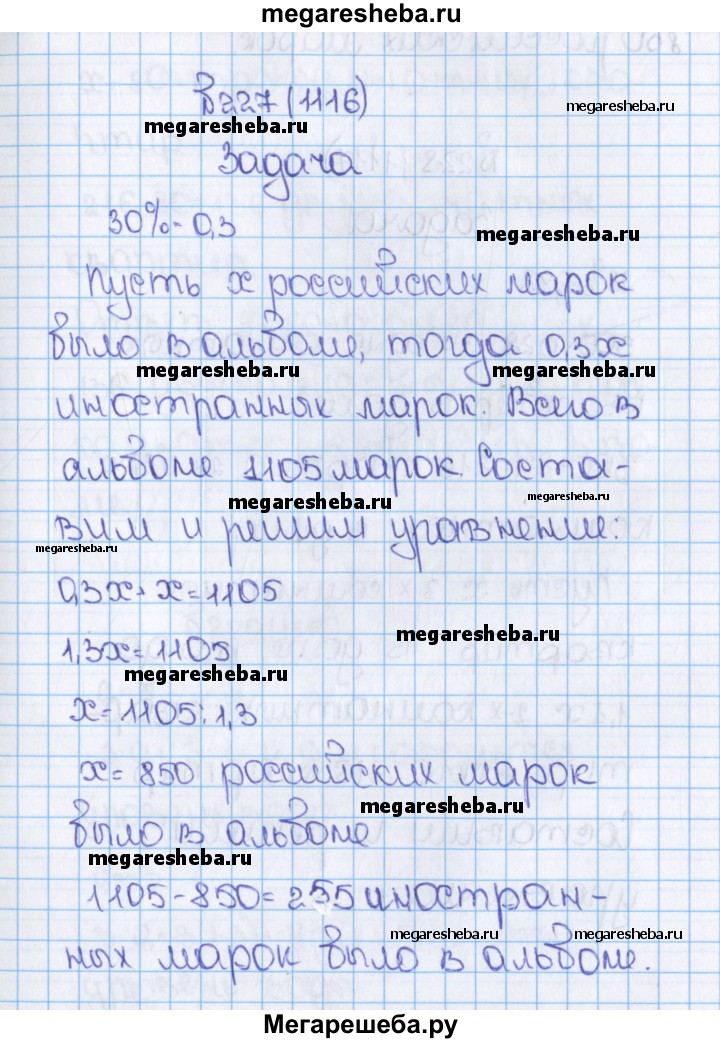 megaresheba.ru
В227 (1116)
megaresheba.ru
megaresheba.ru
Задача
30%-0,3
megaresheba.ru
Пусть х российских марок
было в альбоме, тогда 0,3х
megaresheba.ru
megaresheba.ru
иностранных марок. Всего в
альбоме 1105 марок. Соста-
megaresheba.ru
megaresheba.ru
вим и решим уравнение:
megaresheba.ru
0,3х+х=1105
megaresheba.ru
1,3х=1105
megaresheba.ru
х=1105:1,3
х=850 российских марок
megaresheba.ru
было в альбоме
megaresheba.ru
1105-850=255 иностран-
megaresheba.ru
megaresheba.ru
ных марок было в альбоме.
Мегарешеба.ру